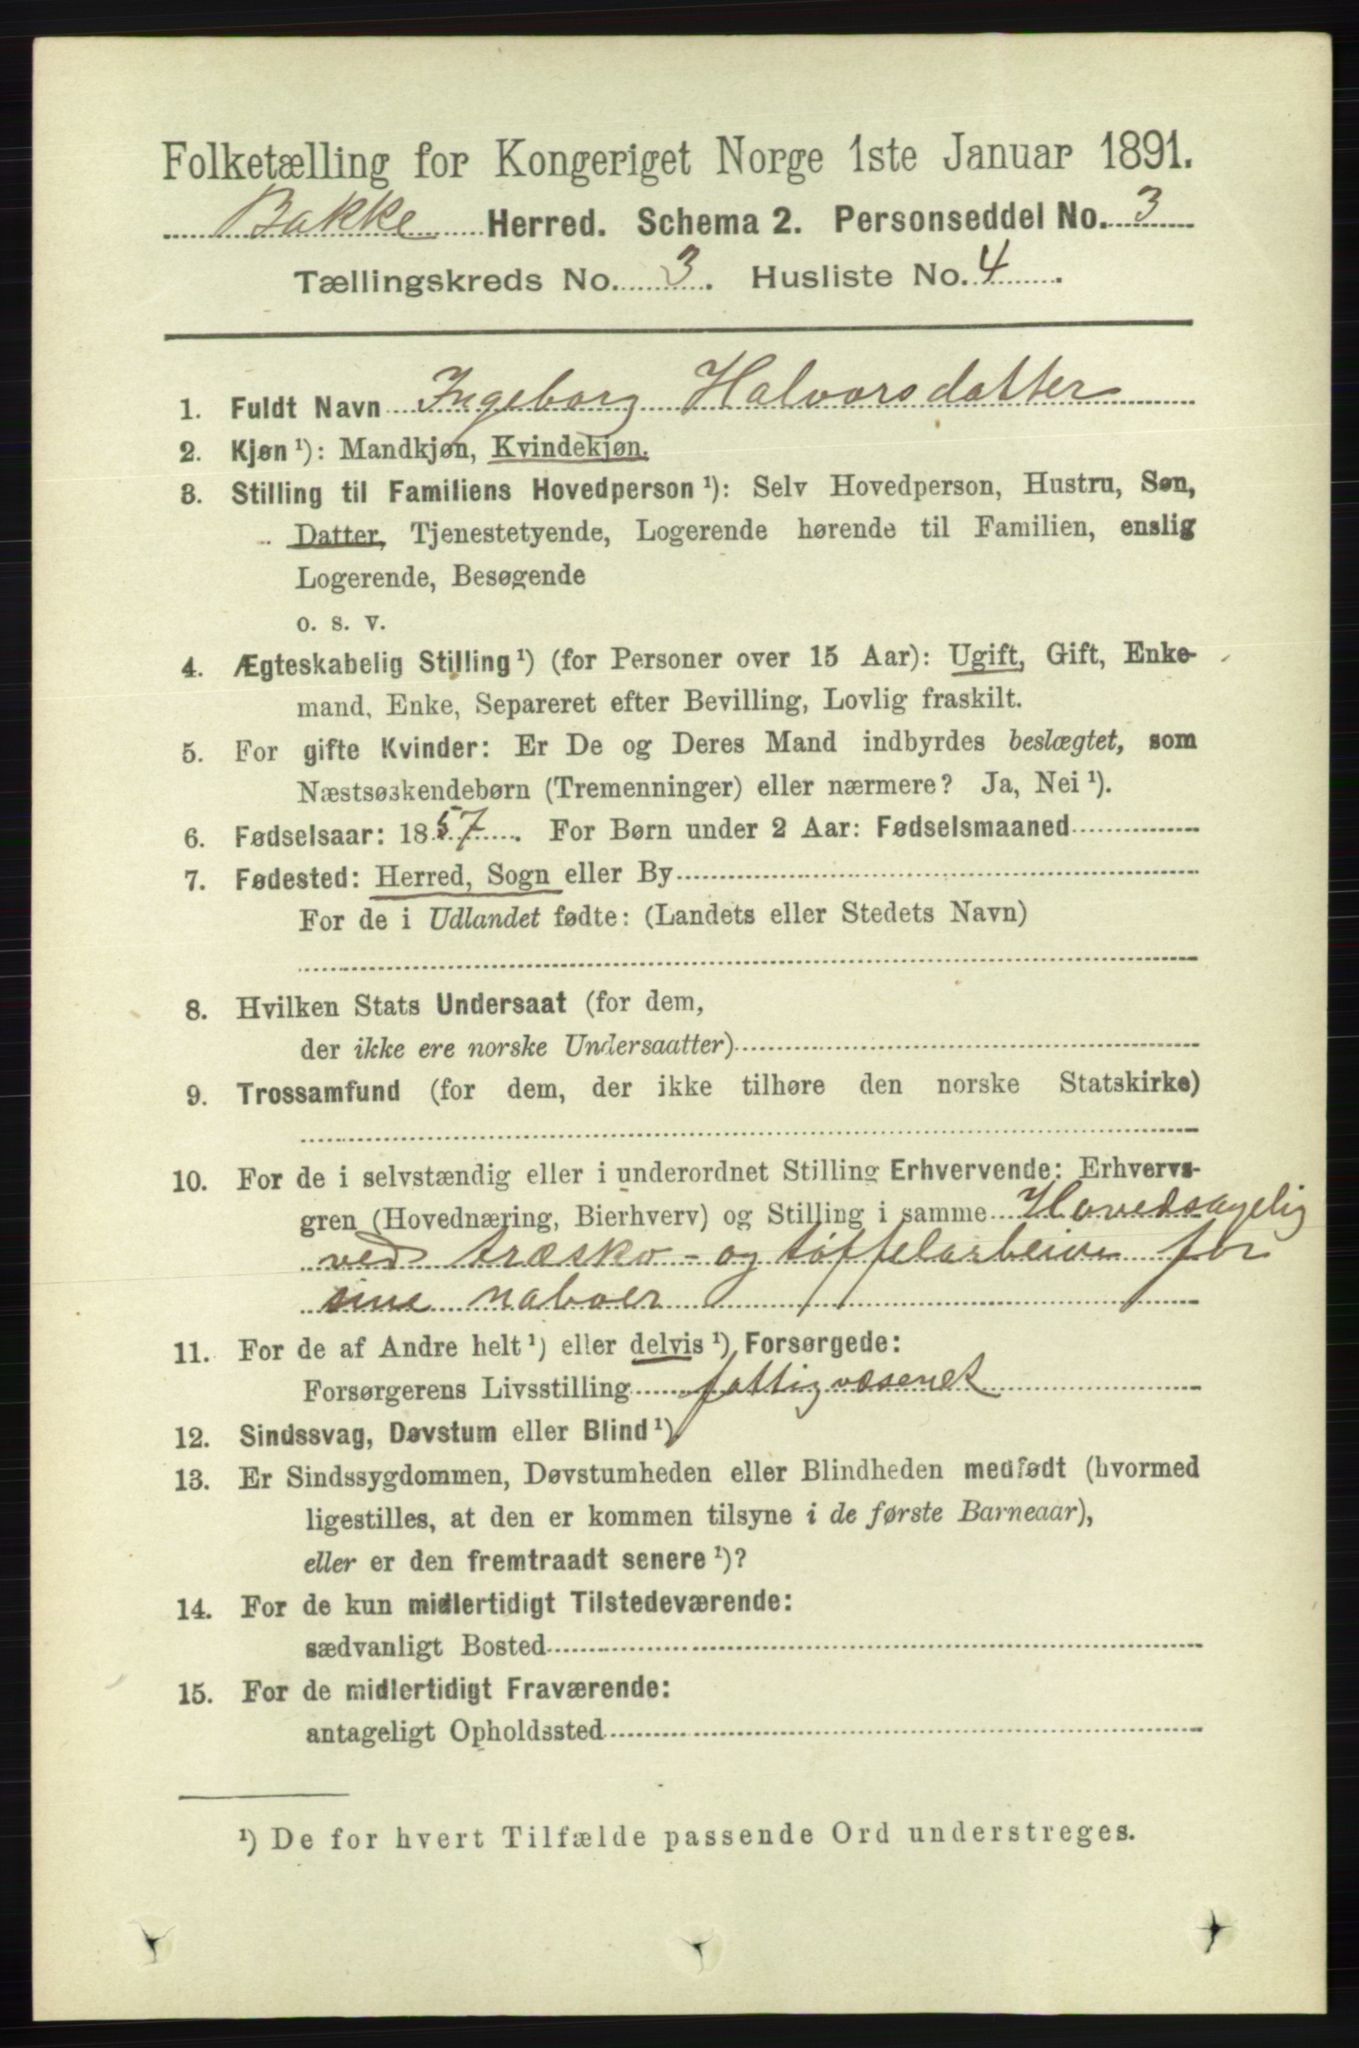 Folketælling for Kongeriget Norge 1ste Januar 1891.
Bakke Herred. Schema 2. Personseddel No. 3
Tællingskreds No. 3. Husliste No. 4.
1. Fuldt Navn Ingeborg Halvorsdatter
2. Kjøn ¹): Mandkjøn, Kvindekjøn.
3. Stilling til Familiens Hovedperson ¹): Selv Hovedperson, Hustru, Søn,
Datter, Tjenestetyende, Logerende hørende til Familien, enslig
Logerende, Besøgende
o. s. v.
4. Ægteskabelig Stilling ¹) (for Personer over 15 Aar): Ugift, Gift, Enke-
mand, Enke, Separeret efter Bevilling, Lovlig fraskilt.
5. For gifte Kvinder: Er De og Deres Mand indbyrdes beslægtet, som
Næstsøskendebørn (Tremenninger) eller nærmere? Ja, Nei ¹).
6. Fødselsaar: 1857. For Børn under 2 Aar: Fødselsmaaned
7. Fødested: Herred, Sogn eller By
For de i Udlandet fødte: (Landets eller Stedets Navn)
8. Hvilken Stats Undersaat (for dem,
der ikke ere norske Undersaatter)
9. Trossamfund (for dem, der ikke tilhøre den norske Statskirke)
10. For de i selvstændig eller i underordnet Stilling Erhvervende: Erhvervs-
gren (Hovednæring, Bierhverv) og Stilling i samme Hovedsagelig
ved træsko- og tøffelarbeide for
sine naboer
11. For de af Andre helt ¹) eller delvis ¹) Forsørgede:
Forsørgerens Livsstilling fattigvæsenet
12. Sindssvag, Døvstum eller Blind ¹)
13. Er Sindssygdommen, Døvstumheden eller Blindheden medfødt (hvormed
ligestilles, at den er kommen tilsyne i de første Barneaar),
eller er den fremtraadt senere ¹)?
14. For de kun midlertidigt Tilstedeværende:
sædvanligt Bosted
15. For de midlertidigt Fraværende:
antageligt Opholdssted
¹) De for hvert Tilfælde passende Ord understreges.